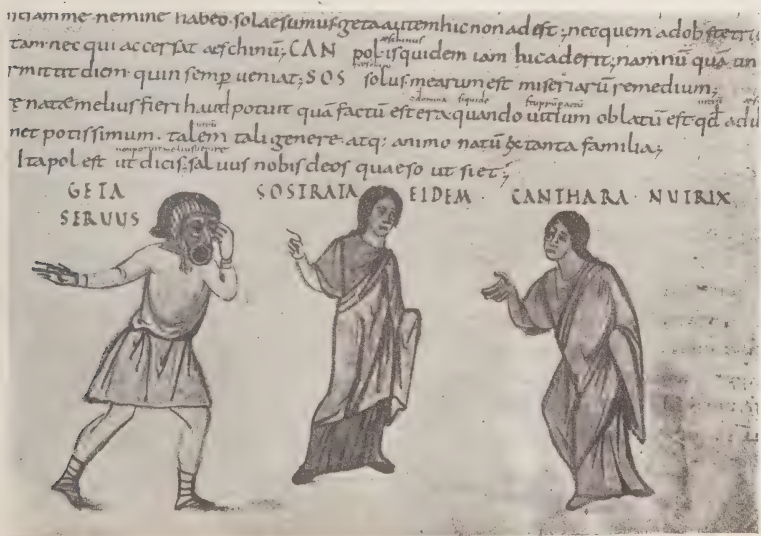 neminē habeo solae sumus geta autem hic non adest; nec quem ad obstetri
tam nec qui accersat aeschinū; CAN pol is quidem iam hic aderit; nam nū quā un
rmittit diem quin semp ueniat; SOS solus mearum est miseriarū remedium;
e natae melius fieri haud potuit quā factū est era quando uitium oblatū est qd ad
net potissimum. talem tali genere atq: animo natū tanta familia;
Ita pol est ut dicis saluus nobis deos quaeso ut siet;
GETA SOSTRATA EIDEM · CANTHARA · NUTRIX
SERUUS